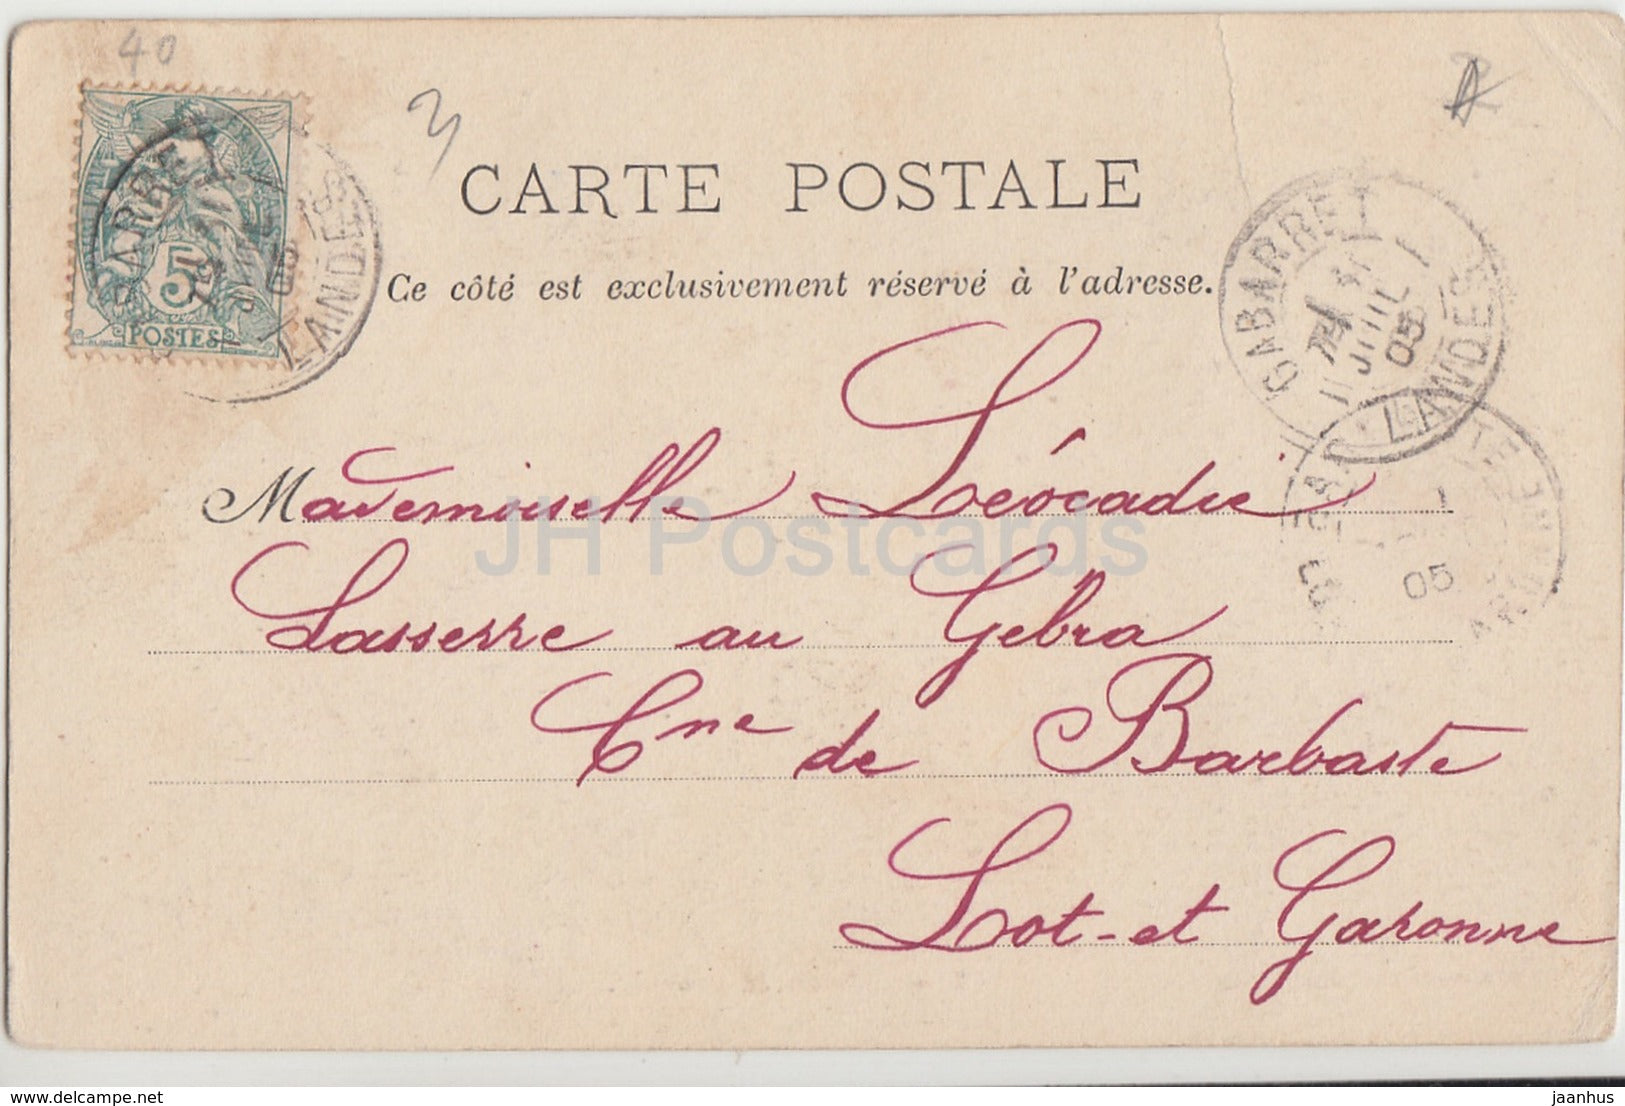 40
3
CARTE POSTALE
Ce côté est exclusivement réservé à l'adresse.
5
POSTES
LANDES
GABARRET
JUIL
05
LANDES
05
Mademoiselle Léocadie
Lasserre au Gebra
Cne de Barbaste
Lot-et Garonne
JH Postcards
delcampe.net
jaanhus